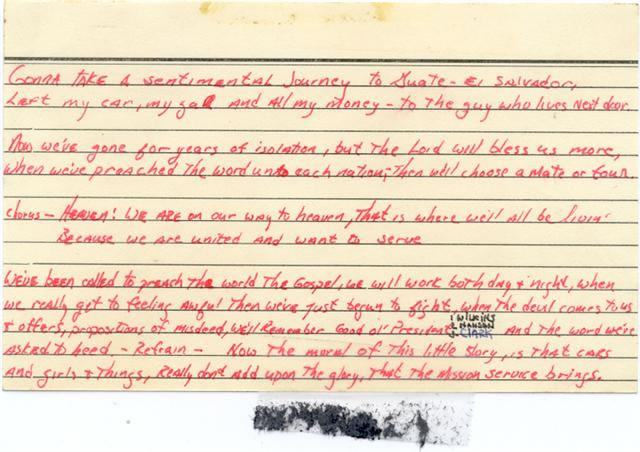 GONNA TAKE A sentimental Journey to Guate - El SALVADOR,
Left my car, my gal AND All my money - to The guy who lives Next door.
Now we've gone for years of isolation, but The Lord will bless us more,
When we've preached The word unto each nation; Then we'll choose a Mate or four.
Chorus - HEAVEN! WE ARE on our way to heaven, That is where we'll all be livin'
Because we are united and want to serve
We've been called to preach The world The Gospel, we will work both day & night, when
we really get to feeling Awful Then we've just begun to fight, when The devil comes to us
& offers, propositions of misdeed, We'll Remember Good ol' President WILKINS
HANSON
J. CLARK AND The word we're
Asked to heed - Refrain - Now The moral of This little story, is That CARS
And girls & Things, Really don't Add upon The glory, That The Mission Service brings.